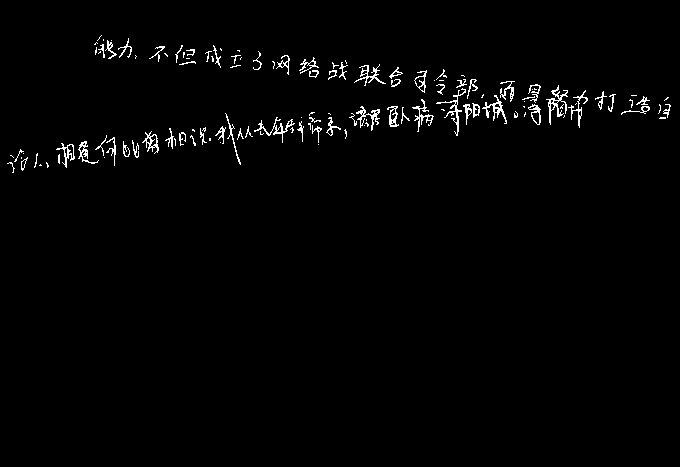 能力,不但成立了网络战联合司令部,而且打造自
沦人,相逢何必曾相识.我从去年辞帝京,谪居卧病浔阳城。浔阳